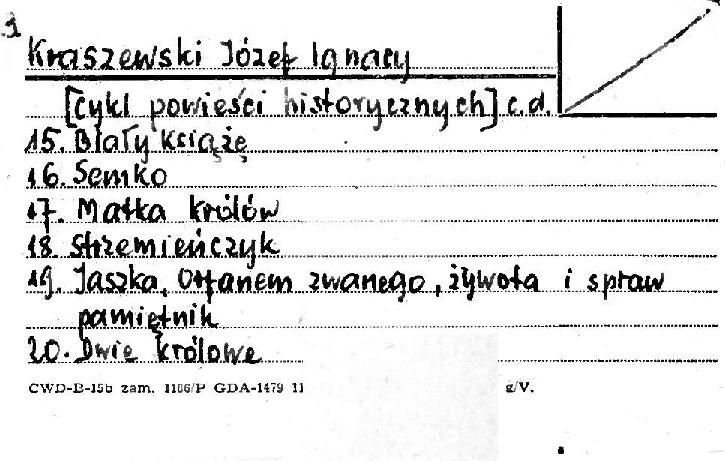 Kraszewski Józef Ignacy
[cykl powieści historycznych] c.d.
15. Biały Książę
16. Semko
17. Matka królów
18 Strzemieńczyk
19. Jaszka, Orfanem zwanego, żywota i spraw
pamiętnik
20. Dwie królowe
CWD-B-15b zam. 1186/P GDA-1479 11 g/V.